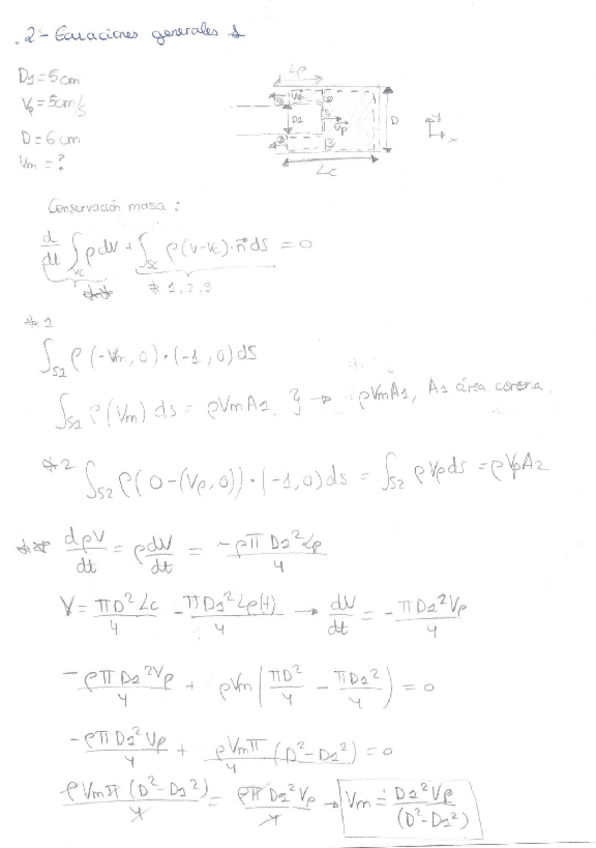 .2- Ecuaciones generales 1
D1=5cm
Vp=5cm/s
D=6cm
Vm=?
Lp
Vm
D1
Vp
D
y
x
Lc
Conservación masa:
d/dt ∫VC ρdV + ∫SC ρ(v-vc)·n ds = 0
* 1,2,3
*1
∫S1 ρ(-Vm,0)·(-1,0)ds
∫S1 ρ(Vm)ds = ρVmA1, → ρVmA1, A1 área corona
*2 ∫S2 ρ(0-(Vp,0))·(-1,0)ds = ∫S2 ρVpds = ρVpA2
** dρV/dt = ρdV/dt = -ρπD1²Lp/4
V = πD²Lc/4 - πD1²Lp(t)/4 → dV/dt = -πD1²Vp/4
-ρπD1²Vp/4 + ρVm(πD²/4 - πD1²/4) = 0
-ρπD1²Vp/4 + ρVmπ/4 (D²-D1²) = 0
ρVmπ(D²-D1²)/4 = ρπD1²Vp/4 → Vm = D1²Vp/(D²-D1²)